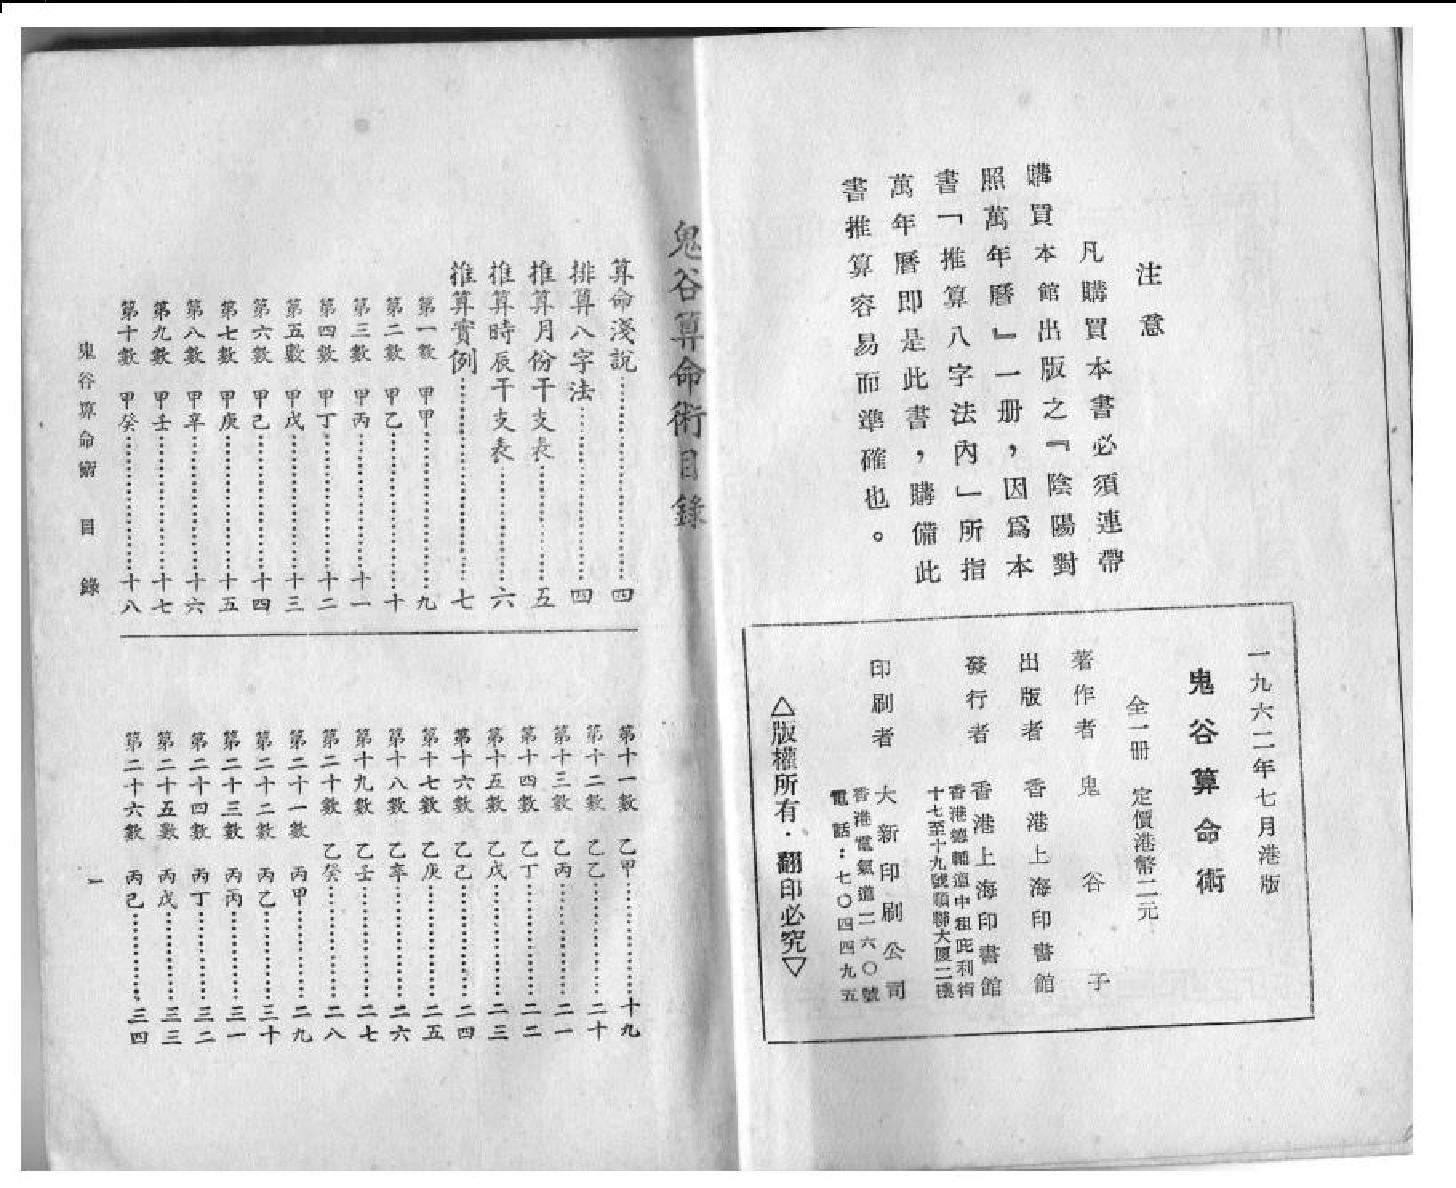 注意
凡購買本書必須連帶
購買本館出版之『陰陽對
照萬年曆』一册，因爲本
書「推算八字法內」所指
萬年曆即是此書，購備此
書推算容易而準確也。
一九六二年七月港版
鬼谷算命術
全一册 定價港幣二元
著作者 鬼谷子
出版者 香港上海印書館
發行者 香港上海印書館
香港德輔道中租庇利街
十七至十九號順聯大厦二樓
印刷者 大新印刷公司
香港電氣道二六〇號
電話：七〇四四九五
△版權所有·翻印必究▽
鬼谷算命術目錄
算命淺說……四
排算八字法……四
推算月份干支表……五
推算時辰干支表……六
推算實例……七
第一數 甲甲……九
第二數 甲乙……十
第三數 甲丙……十一
第四數 甲丁……十二
第五數 甲戊……十三
第六數 甲己……十四
第七數 甲庚……十五
第八數 甲辛……十六
第九數 甲壬……十七
第十數 甲癸……十八
第十一數 乙甲……十九
第十二數 乙乙……二十
第十三數 乙丙……二一
第十四數 乙丁……二二
第十五數 乙戊……二三
第十六數 乙己……二四
第十七數 乙庚……二五
第十八數 乙辛……二六
第十九數 乙壬……二七
第二十數 乙癸……二八
第二十一數 丙甲……二九
第二十二數 丙乙……三十
第二十三數 丙丙……三一
第二十四數 丙丁……三二
第二十五數 丙戊……三三
第二十六數 丙己……三四
鬼谷算命術 目錄
一